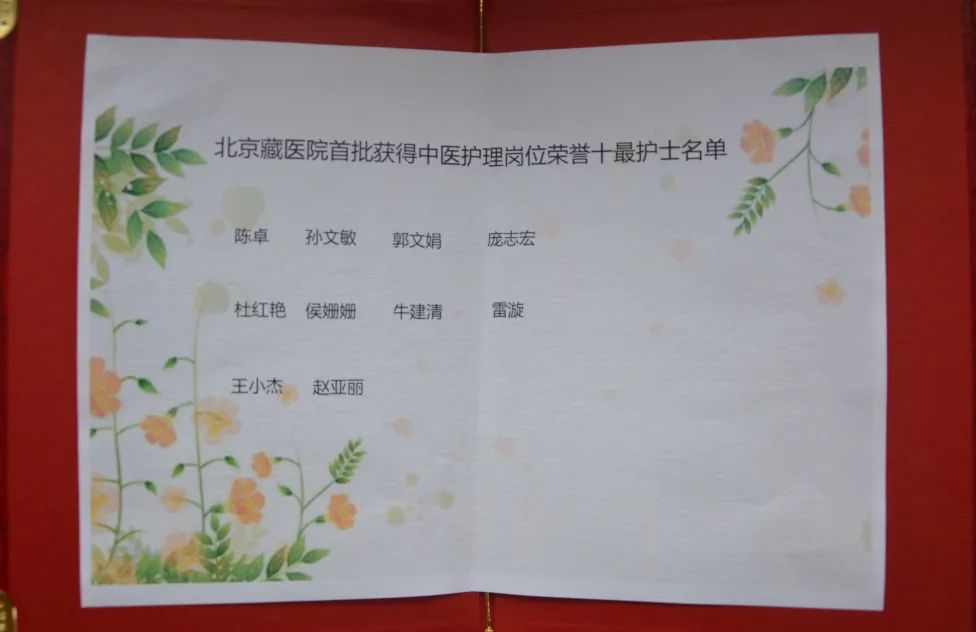 北京藏医院首批获得中医护理岗位荣誉十最护士名单
陈卓 孙文敏 郭文娟 庞志宏
杜红艳 侯姗姗 牛建清 雷漩
王小杰 赵亚丽